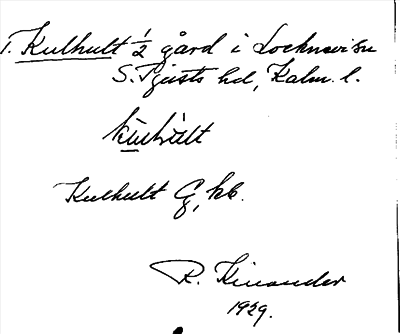 1. Kulhult ½ gård i Locknevi sn
S. Tjusts hd, Kalm. l.
Kulhult G, kb.
R. Kinander
1929.